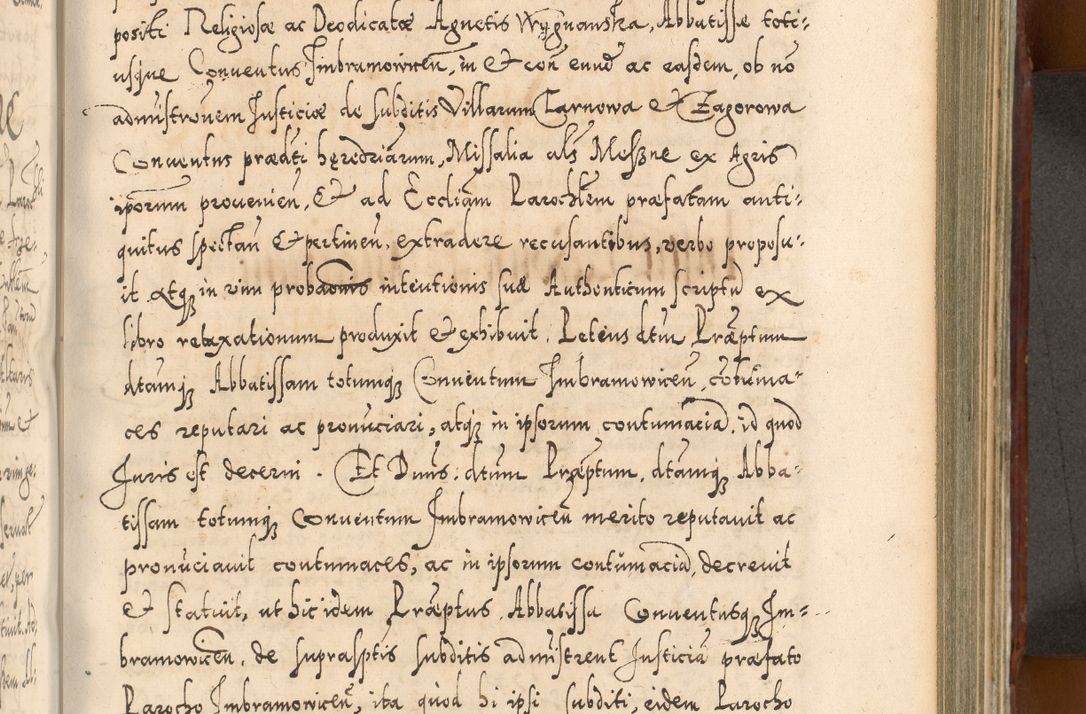 positi Religiosæ ac Deodicatæ Agnetis Wÿgnanska, Abbatissæ toti=
usque Conventus Imbramowiceñ, in & coñ eund ac easdem, ob no
admĩstrõnem Iusticiæ de subditis Villarum Tarnowa & Zagorowa
Conuentus prædti hęredriarum, Missalia als Meszne ex Agris
ipõrum prouenieñ, & ad Eccliam Parochlem præfatam anti=
quitus spectañ & pertineñ, extradere recusantibus, verbo proposu=
it atq3 in vim probaõnis intentionis suæ Authenticum scriptũ ex
libro retaxationum produxit & exhibuit. Petens dtm Præptum
dtamq3 Abbatissam totumq3 Conuentum Imbramowiceñ, cotuma=
ces reputari ac pronũciari, atq3 in ipsorum contumaciã, id quod
Iuris est decerni. Et Dnũs, dtum Præptum, dtamq3 Abba=
tissam totumq3 Conuentum Imbramowiceñ merito reputauit ac
pronũciauit contumaces, ac in ipsorum contũmaciã, decreuit
& statuit, ut hic idem Præptus, Abbatissa Conuentusq3 Im=
bramowiceñ, de suprasptis subditis admĩstrent Iusticiã præfato
Parocho Imbramowiceñ, ita quod hi ipsi subditi, eidem Parocho